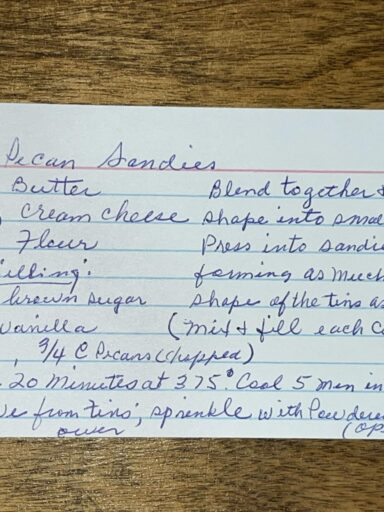 Pecan Sandies
Butter Blend together &
cream cheese shape into small
Flour Press into sandie
illing: forming as much
brown sugar shape of the tins as
vanilla (mix & fill each c
, 3/4 C Pecans (chopped)
20 Minutes at 375° Cool 5 men in
ve from tins; sprinkle with Powdere
over (op